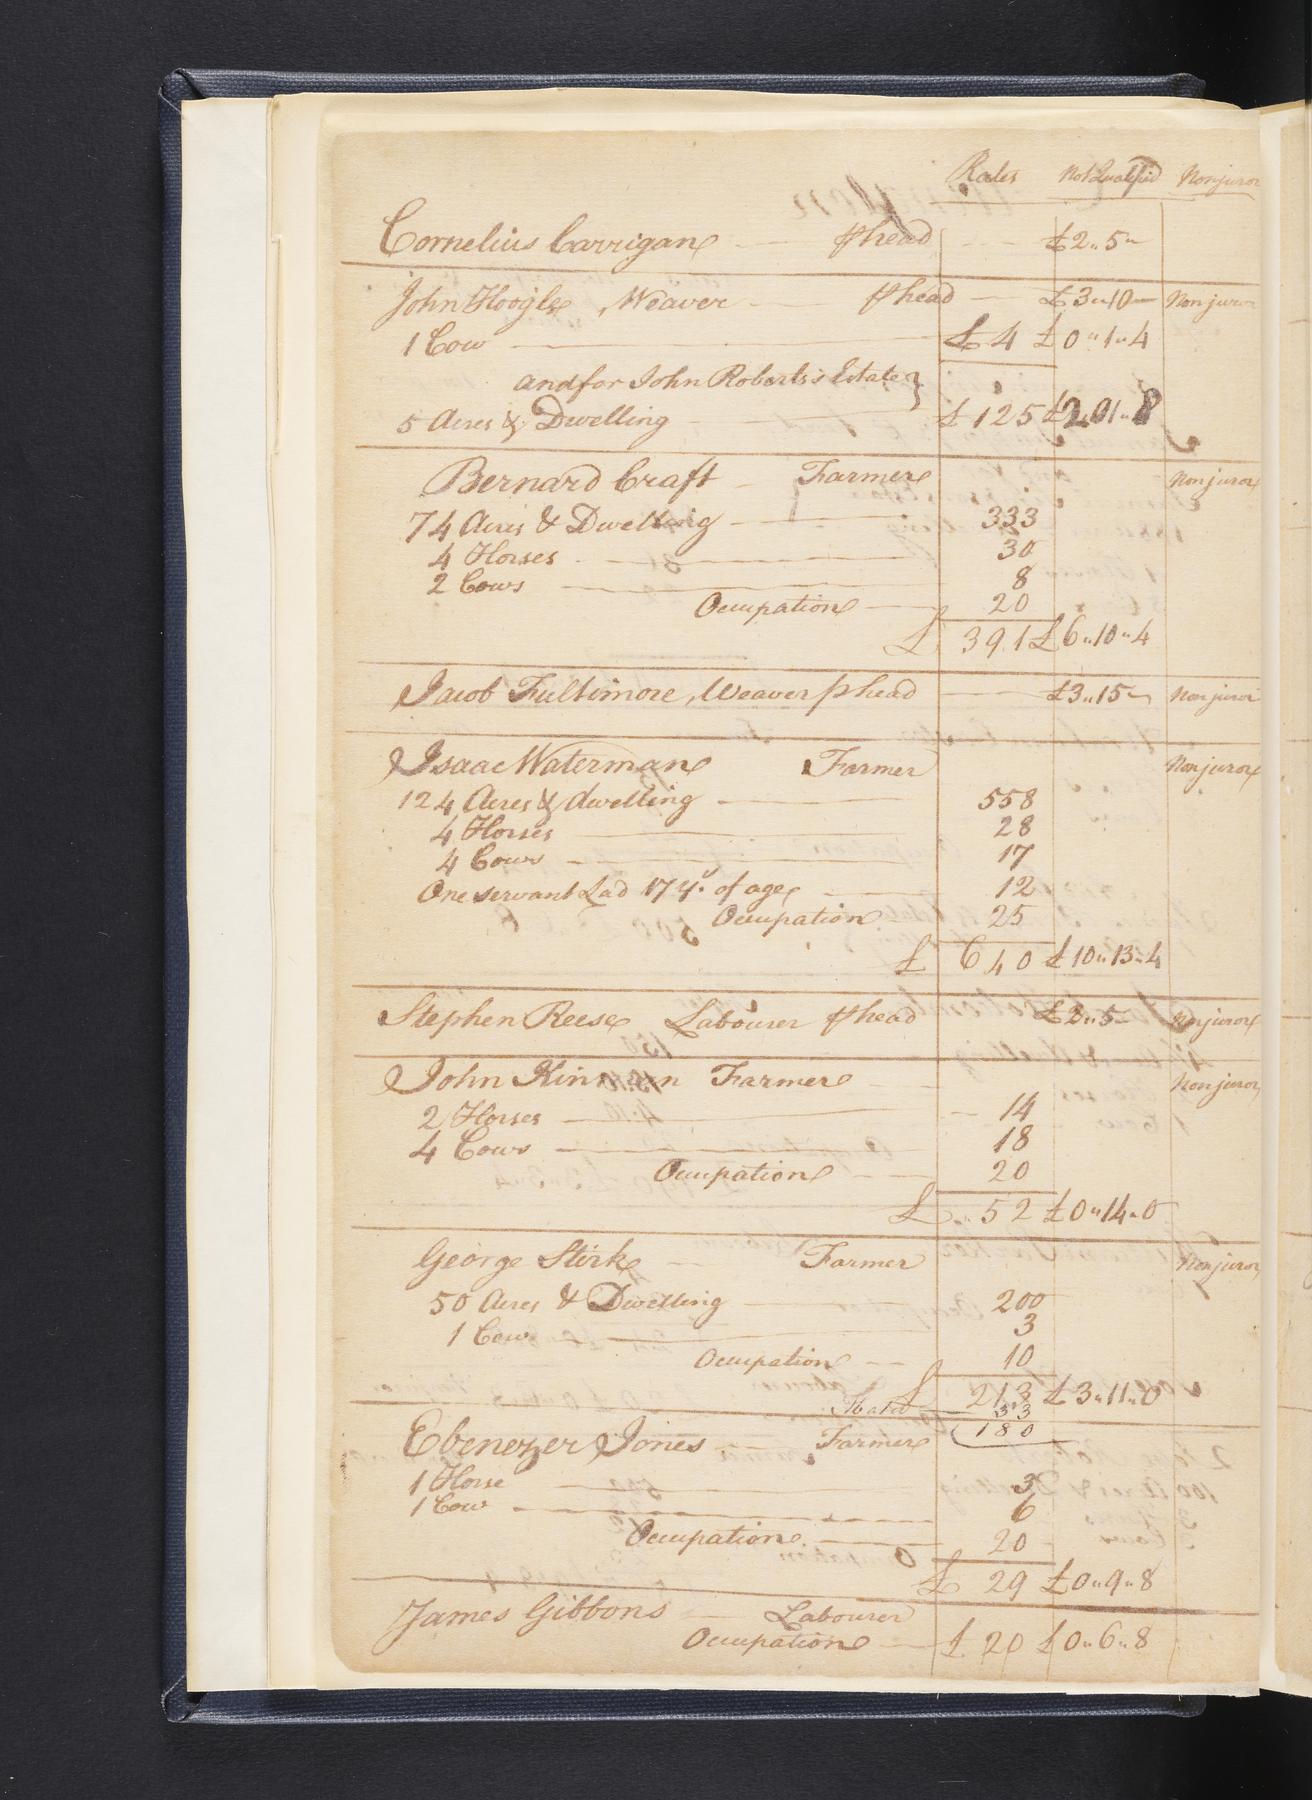 Rates Not Qualified Nonjuror
Cornelius Carrigan ⅌ head £2"5"
John Hoogle, Weaver ⅌ head £3"10 Nonjuror
1 Cow £4 £0"1"4
and for John Roberts's Estate }
5 Acres & Dwelling £125 £2"01"8
Bernard Craft Farmer Nonjuror
74 Acres & Dwelling 333
4 Horses 30
2 Cows 8
Occupation 20
£ 391 £6"10"4
Jacob Fultimore, Weaver ⅌ head £3"15 Nonjuror
Isaac Waterman Farmer Nonjuror
124 Acres & dwelling 558
4 Horses 28
4 Cows 17
One servant Lad 17 y.s of age 12
Occupation 25
£ 640 £10"13"4
Stephen Reese Labourer ⅌ head £2"5 Nonjuror
John Kinnan Farmer Nonjuror
2 Horses 14
4 Cows 18
Occupation 20
£ 52 £0"14"0
George Stirk Farmer Nonjuror
50 Acres & Dwelling 200
1 Cow 3
Occupation 10
£ 213 £3"11"0
33
180
Ebenezer Jones Farmer
1 Horse 3
1 Cow 6
Occupation 20
£ 29 £0"9"8
James Gibbons Labourer
Occupation £ 20 £0"6"8